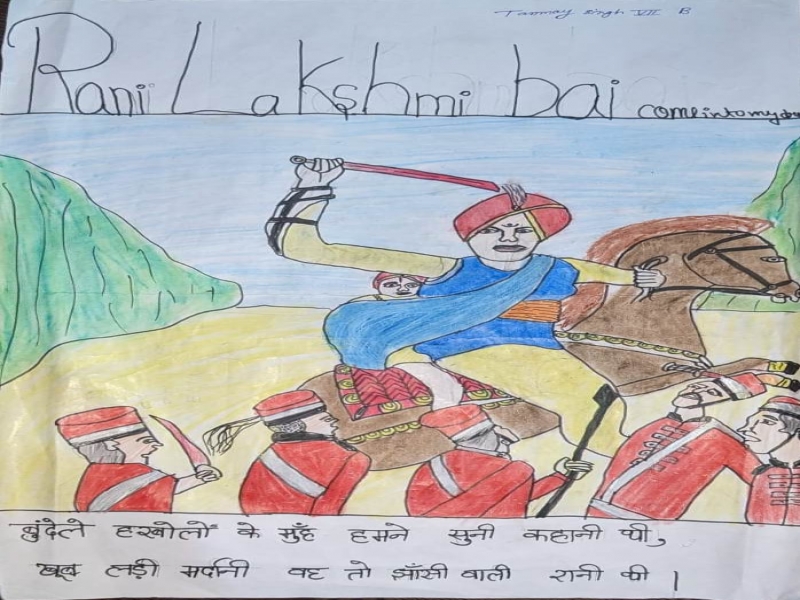 Tanmay Singh VII B
Rani Lakshmi bai come into my
बुंदेले हरबोलों के मुँह हमने सुनी कहानी थी,
खूब लड़ी मर्दानी वह तो झाँसी वाली रानी थी।